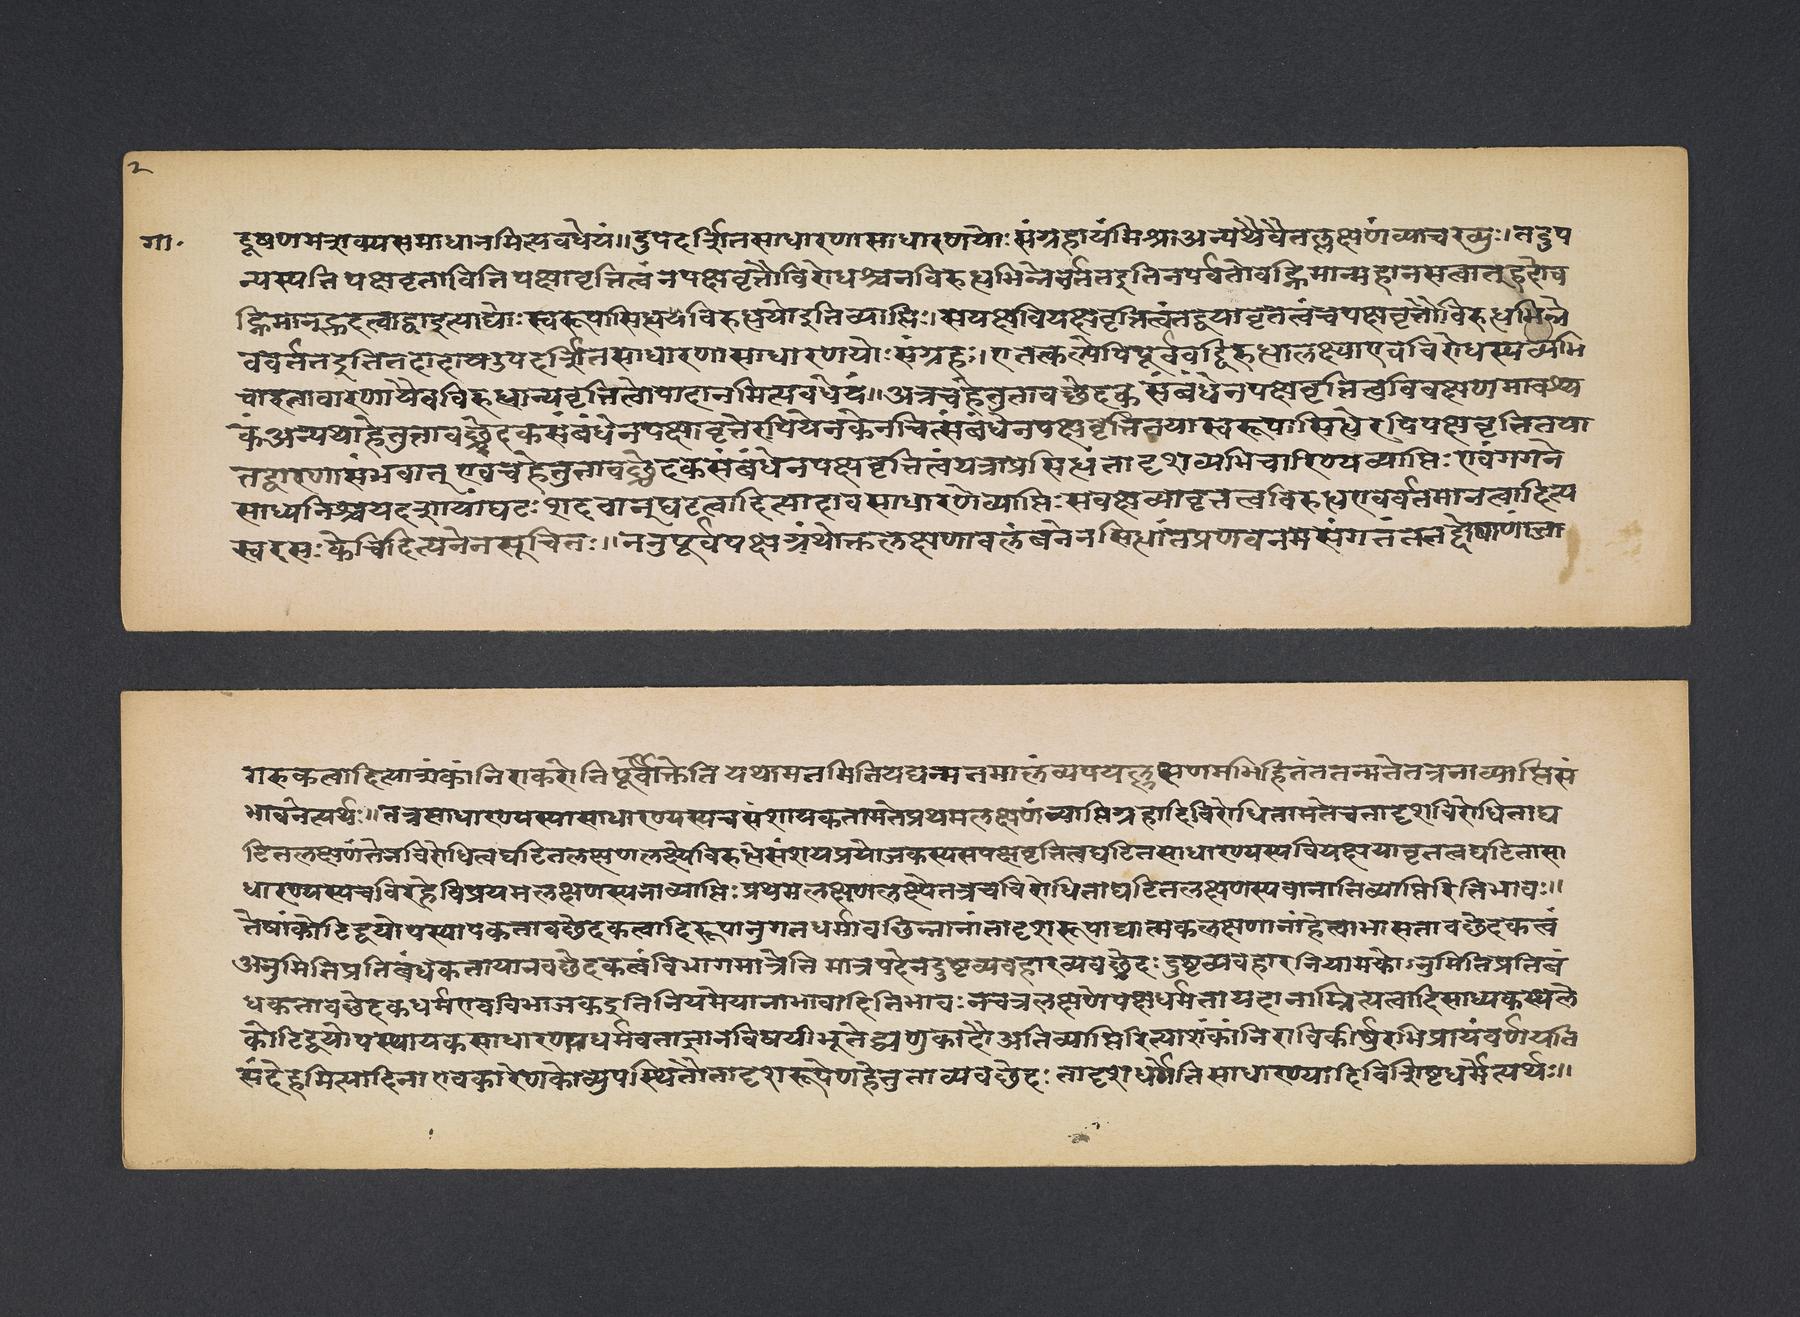 २
गा.
दूषणमत्रावयसमाधानमित्यवधेयं॥दुपदर्शितसाधारणासाधारणयोः संग्रहायंमिश्राअन्यथैवैतल्लक्षणंव्याचख्युः।तदुप
न्यस्यति पक्षवृत्तावितिपक्षावृत्तित्वंनपक्षवृत्तौविरोधश्चनविरुद्धभिन्नेवर्ततइतिनपर्वतोवह्निमान्महानसत्वात्
स्वरूपासिद्धयेविरुद्धयोइतिव्याप्तिः।सपक्षविपक्षवृत्तित्वंतद्वयावृतत्वंचपक्षवृत्तौविरुद्धभिन्ने
ववर्ततइतितदादायउपदर्शितसाधारणासाधारणयोः संग्रहः। एतत्कल्पेपिपूर्ववद्विरुद्धालक्ष्याएवविरोधस्यव्यभि
चारतावारणायैवविरुद्धान्यवृत्तित्वोपादानमित्यवधेयं॥अत्रचहेतुतावछेदकसंबंधेनपक्षवृत्तित्वविवक्षणमावश्य
कंअन्यथाहेतुतावछेदकसंबंधेनपक्षावृत्तेरपियेनकेनचित्संबंधेनपक्षवृत्तितयास्वरूपासिद्धेरपिपक्षवृत्तितया
तद्वारणासंभवात् एवंचहेतुतावछेदकसंबंधेनपक्षवृत्तित्वंयत्राप्रसिद्धंतादृशव्यभिचारिण्यव्याप्तिः एवंगगने
साध्यनिश्चयदशायांघटः शब्दवान्घटत्वादित्यादावसाधारणेव्याप्तिः सपक्षव्यावृत्तत्वविरुद्धएववर्त्तमानत्वादित्य
स्वरसः केचिदित्यनेनसूचितः॥ननुपूर्वपक्षग्रंथोक्तलक्षणावलंबनेनसिद्धांतप्रणयनमसंगतंतत्तद्दोषाणांजा
गरूकत्वादित्याशंकांनिराकरोतिपूर्वोक्तेति यथामतमितियद्यन्मतमालंव्ययल्लक्षणमभिहितंतत्तन्मतेतत्रनाव्याप्तिसं
भावनेत्यर्थः॥तत्रसाधारण्यस्यासाधारण्यस्यचसंशायकतामतेप्रथमलक्षणंव्याप्तिग्रहादिविरोधितामतेचतादृशविरोधिताघ
टितलक्षणंतेनविरोधित्वघटितलक्षणलक्ष्येविरुद्धेसंशयप्रयोजकस्यसपक्षवृत्तित्वघटितसाधारण्यस्यविपक्षव्यावृत्तत्वघटितासा
धारण्यस्यचविरहेपिप्रथमलक्षणस्यनाव्याप्तिः प्रथमलक्षणलक्ष्येतत्रचविरोधिताघटितलक्षणस्यवानातिव्याप्तिरितिभावः॥
तेषांकोटिद्वयोपस्थापकतावछेदकत्वादिरूपानुगतधर्मावछिन्नानांतादृशरूपाद्यात्मकलक्षणानांहेत्वाभासतावछेदकत्वं
अनुमितिप्रतिबंधकतायानवछेदकत्वंविभागमात्रेति मात्रपदेनदुष्टव्यवहारव्यवछेदः दुष्टव्यवहारनियामकोऽनुमितिप्रतिबं
धकतावछेदकधर्मएवविभाजकइतिनियमेमानाभावादितिभावः नचत्रलक्षणेपक्षधर्मता
कोटिद्वयोपस्थापकसाधारण्यधर्मवताज्ञानविषयीभूतेअणुकादौ अतिव्याप्तिरित्याशंकांनिराचिकीर्षुरभिप्रायंवर्णयति
संदेहमित्यादिना एवकारेणकोट्युपस्थितौतादृशरूपेणहेतुताव्यवछेदः तादृशधर्मेतिसाधारण्यादिविशिष्टधर्मेत्यर्थः॥